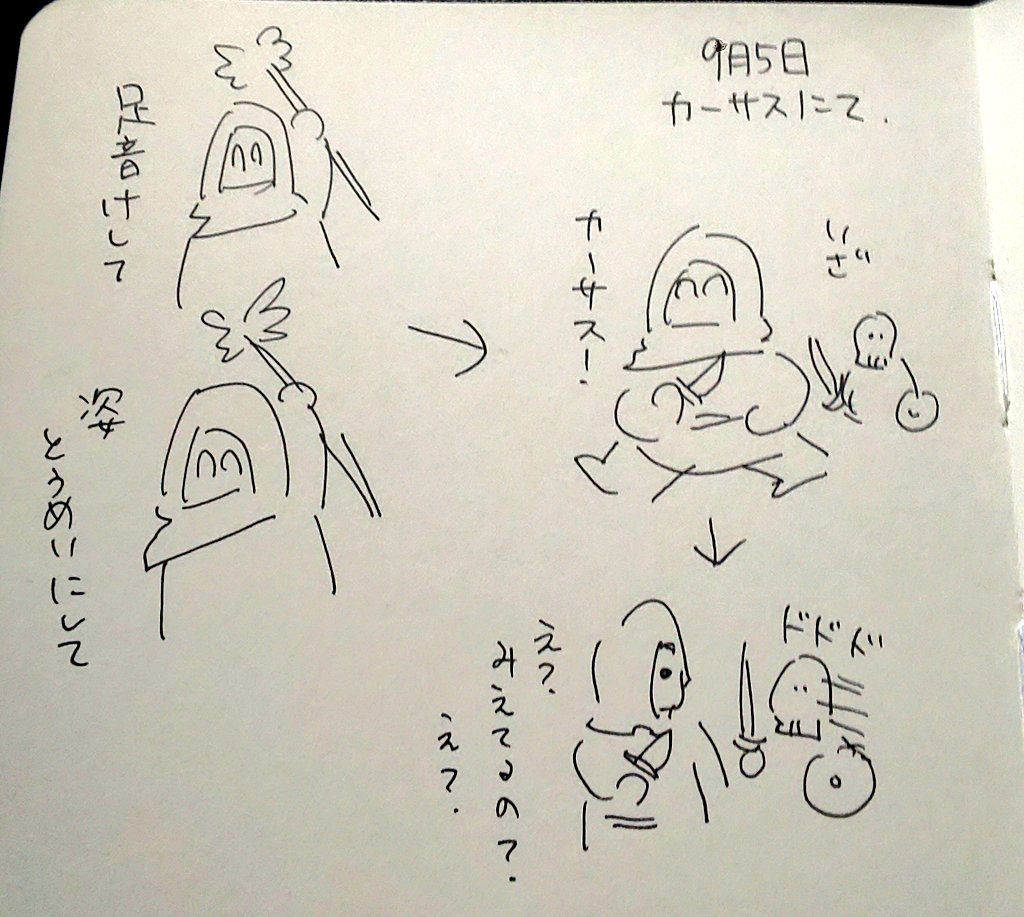 9月5日
カーサスにて.
足音けして
姿
とうめいにして
カーサスー!
いざ
え?
みえてるの?
え?
ドドド